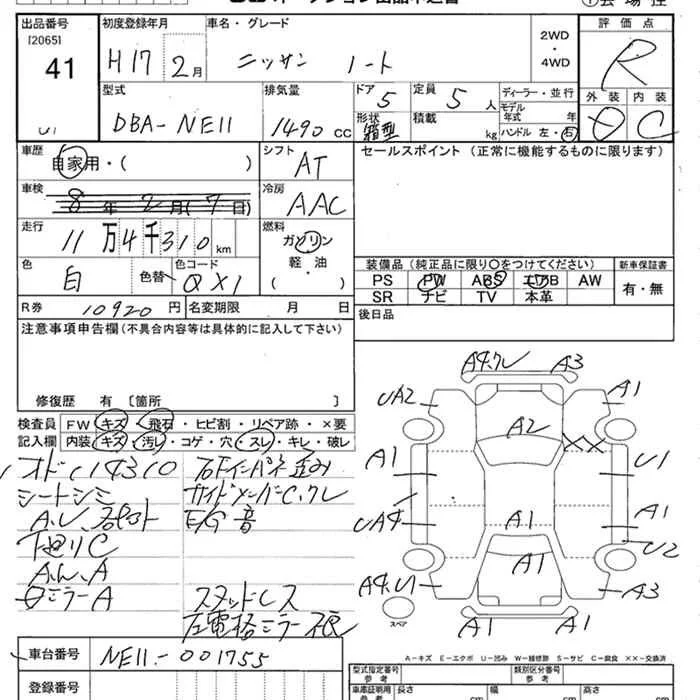 出品番号 初度登録年月 車名・グレード 2WD・4WD 評価点
[2065] 41 H17 2月 ニッサン ノート R
外装 内装
C
型式 排気量 ドア 定員 ディーラー・並行
DBA-NE11 1490 CC 5 5人 モデル年式 年
形状 箱型 積載 kg ハンドル 左・右
車歴 自家用・( ) シフト AT セールスポイント (正常に機能するものに限ります)
車検 8年2月(7日) 冷房 AAC
走行 11万4千310km 燃料 ガソリン
軽・油
( )
色 白 色替 色コード QX1
装備品 (純正品に限り○をつけてください) 新車保証書
PS PW ABS エアB AW 有・無
SR ナビ TV 本革
R券 10920円 名変期限 月 日 後日品
注意事項申告欄(不具合内容等は具体的に記入して下さい)
修復歴 有 [箇所 ]
検査員 FW キズ・飛石・ヒビ割・リペア跡・×要
記入欄 内装 キズ・汚レ・コゲ・穴・スレ・キレ・破レ
シートシミ
下廻りC
E/G音
ミラーA
スタッドレス
左電格ミラー
A4.クレ A3
UA2 A1
A2 XX
A1 U1
UA4 A1 A1
U2
A4.U1 A1 A3
A1 A1
スペア
A-キズ E-エクボ U-凹み W-補修跡 S-サビ C-腐食 ××-交換済
車台番号 NE11-001755
型式指定番号 参考 類別区分番号 参考
登録番号 車庫証明用 参考 長さ cm 幅 cm 高さ cm